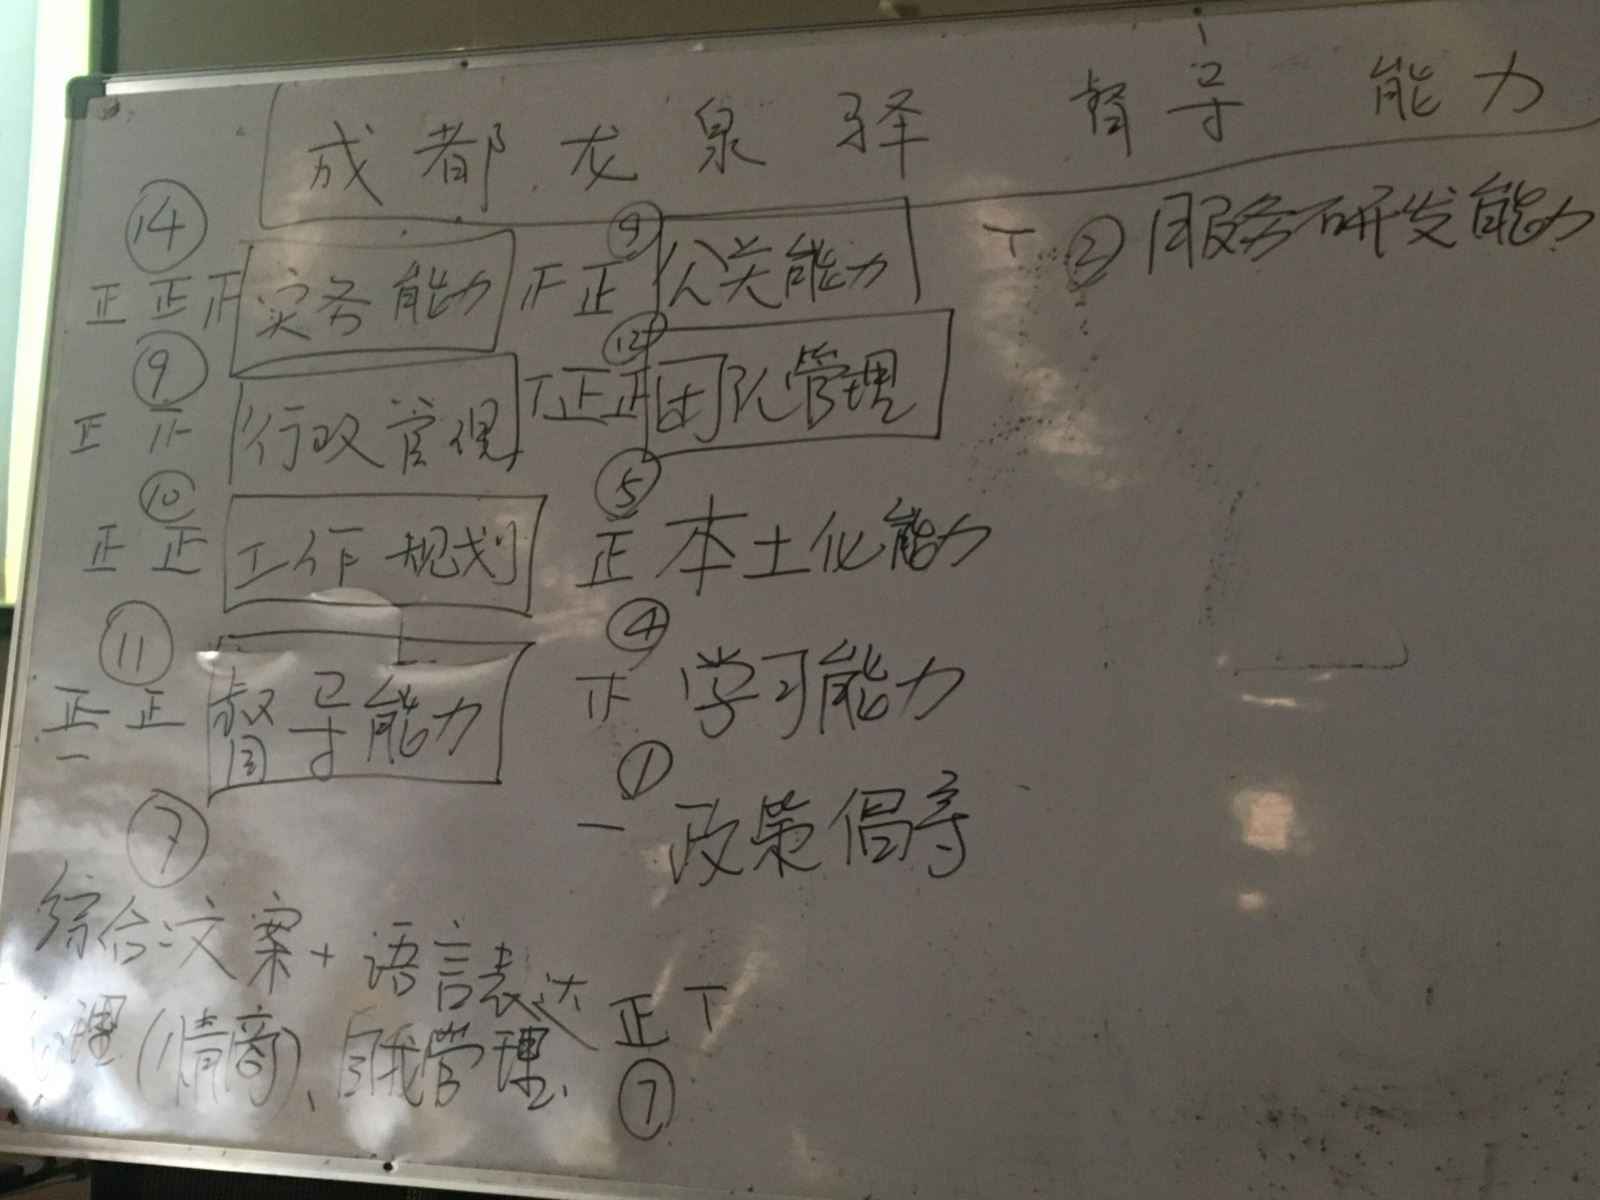 成都龙泉驿 督导 能力
⑭
正正正 实务能力
⑨
正正 公关能力
T ② 服务研发能力
⑨
正 正 行政管理
⑫
T正正 团队管理
⑩
正正 工作规划
⑤
正 本土化能力
⑪
正正一 督导能力
④
正 学习能力
①
一 政策倡导
⑦
综合文案+语言表达
心理(情商)、自我管理、
正T
⑦